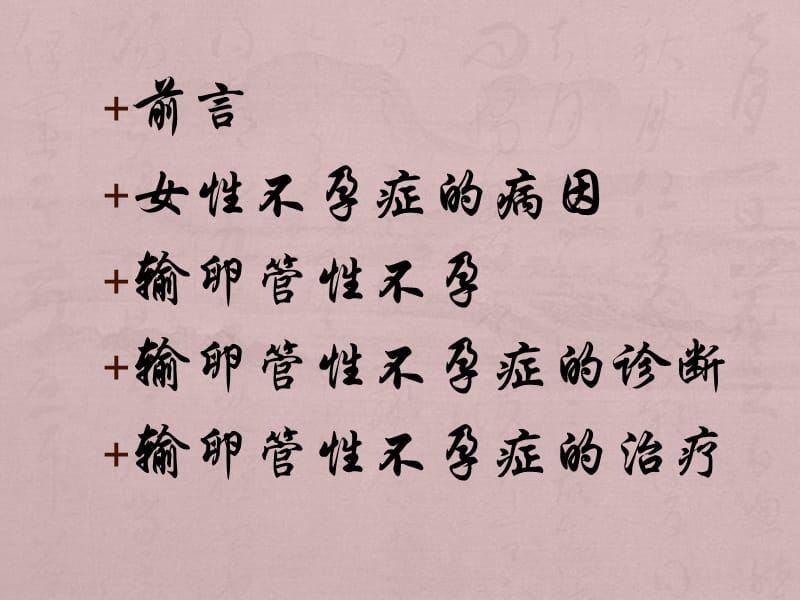 +前言
+女性不孕症的病因
+输卵管性不孕
+输卵管性不孕症的诊断
+输卵管性不孕症的治疗